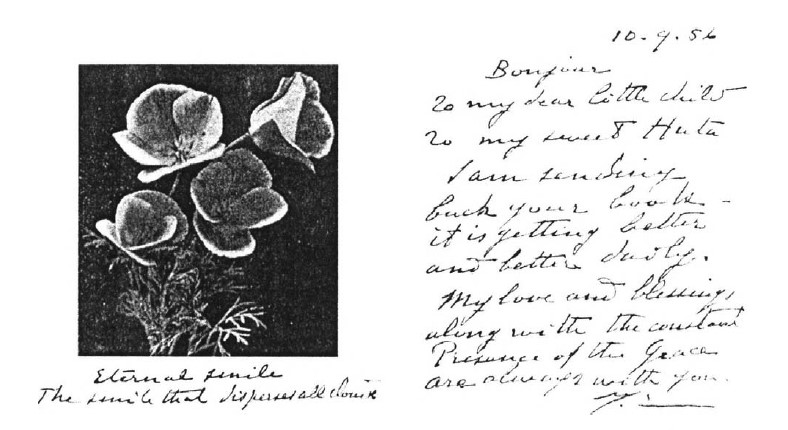 Eternal smile
The smile that disperses all clouds
10.9.56
Bonjour
to my dear little child
to my sweet Huta
I am sending
back your book -
it is getting better
and better daily.
My love and blessings
along with the constant
Presence of the Grace
are always with you.